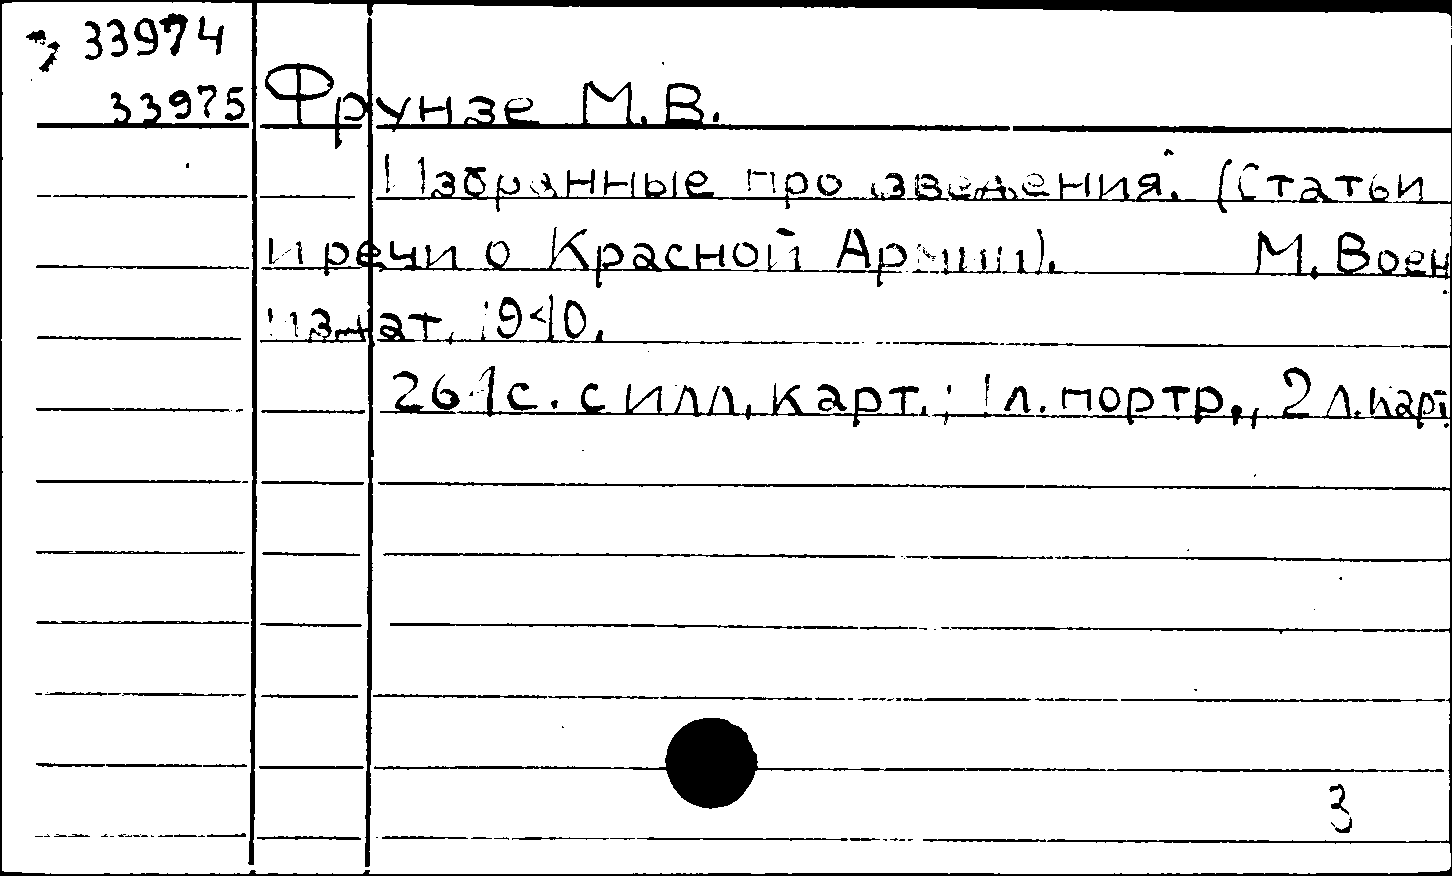 33974
33975 Фрунзе М.В.
Избранные произведения. (Статьи
и речи о Красной Армии). М. Воен
издат, 1940.
261 с. с илл. карт.; 1 л. портр., 2 л. карт.
3